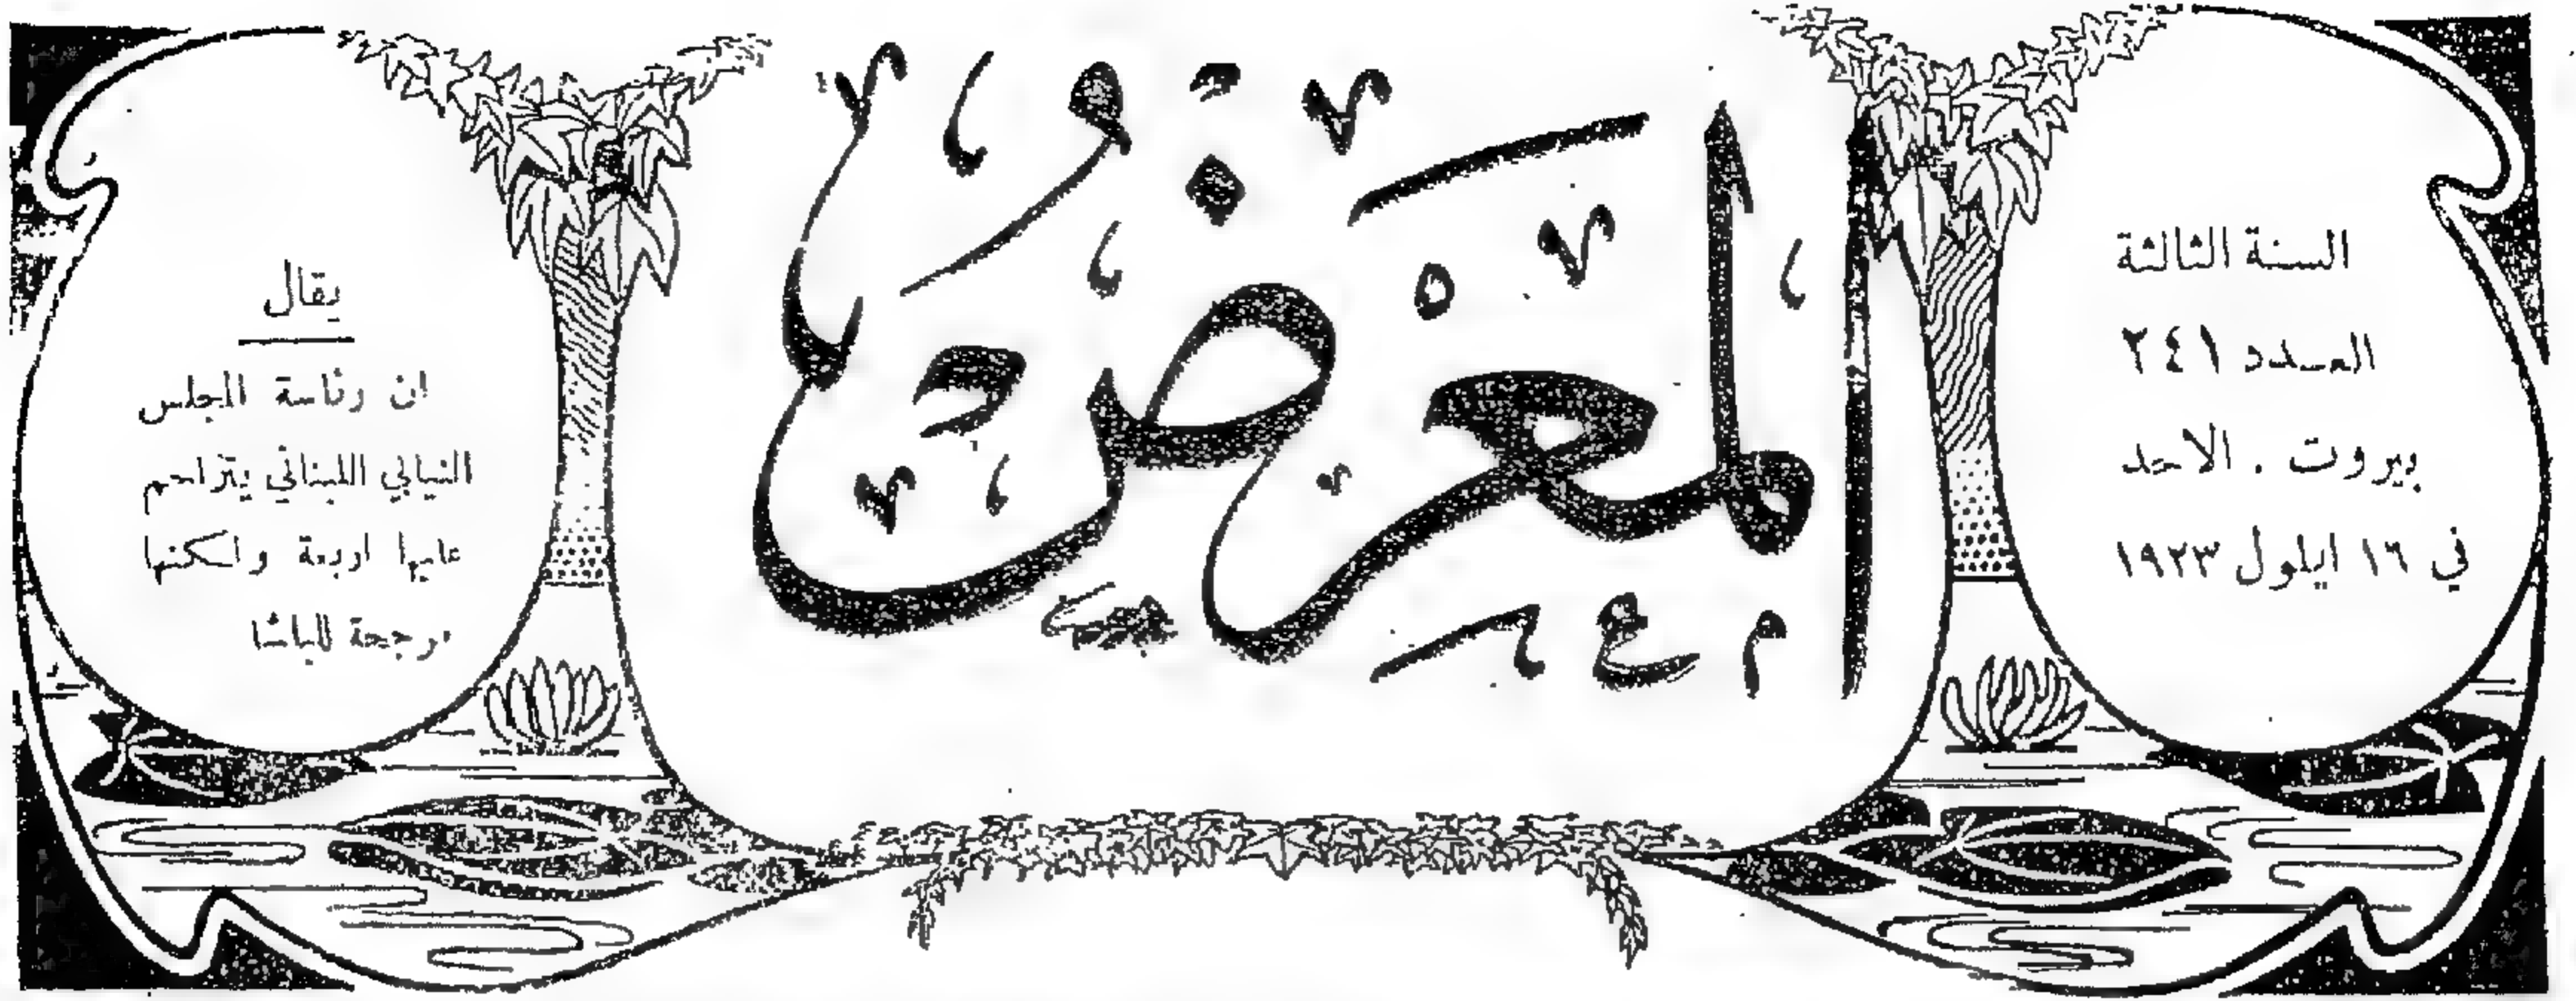 السنة الثالثة
العدد ٢٤١
بيروت . الاحد
في ١٦ ايلول ١٩٢٣
المعرض
يقال
ان رئاسة المجلس
النيابي اللبناني يتزاحم
عليها اربعة ولكنها
مرجحة للباشا